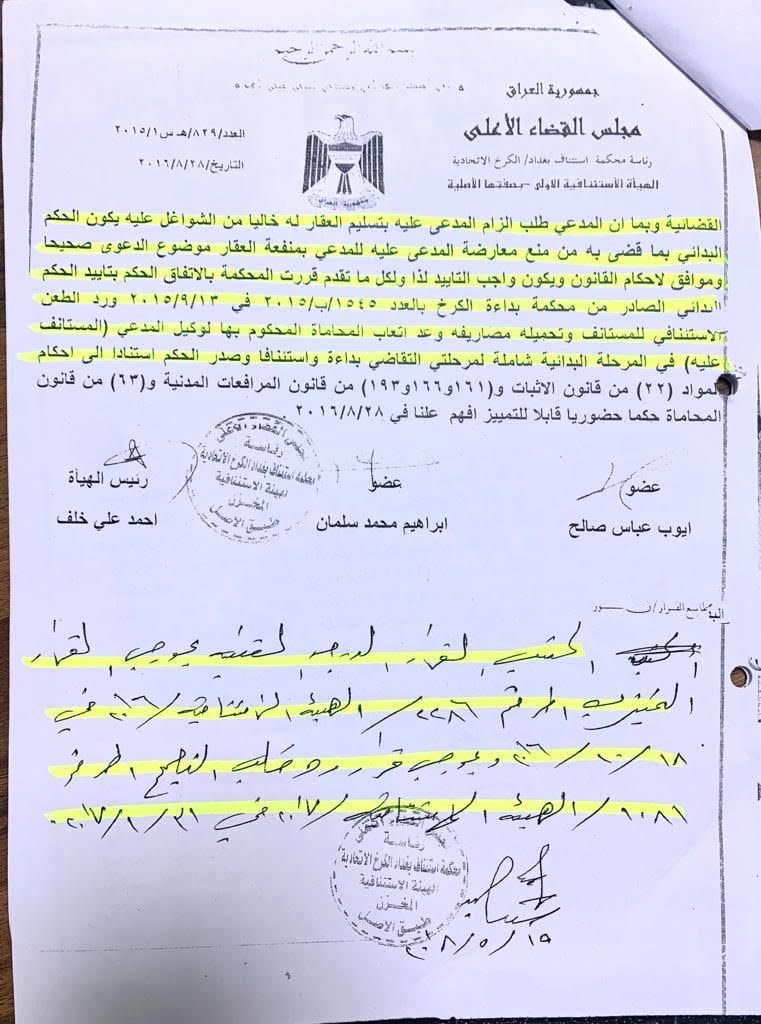 بسم الله الرحمن الرحيم
جمهورية العراق
مجلس القضاء الأعلى
رئاسة محكمة استئناف بغداد/ الكرخ الاتحادية
الهيأة الأستئنافية الاولى -بصفتها الأصلية
العدد/٨٢٩/هـ س٢٠١٥/١
التاريخ/٢٠١٦/٨/٢٨
القضائية وبما ان المدعي طلب الزام المدعى عليه بتسليم العقار له خاليا من الشواغل عليه يكون الحكم
البدائي بما قضى به من منع معارضة المدعى عليه للمدعي بمنفعة العقار موضوع الدعوى صحيحا
وموافق لاحكام القانون ويكون واجب التاييد لذا ولكل ما تقدم قررت المحكمة بالاتفاق الحكم بتاييد الحكم
البدائي الصادر من محكمة بداءة الكرخ بالعدد ١٥٤٥/ب/٢٠١٥ في ٢٠١٥/٩/١٣ ورد الطعن
الاستئنافي للمستانف وتحميله مصاريفه وعد اتعاب المحاماة المحكوم بها لوكيل المدعي (المستانف
عليه) في المرحلة البدائية شاملة لمرحلتي التقاضي بداءة واستئنافا وصدر الحكم استنادا الى احكام
المواد (٢٢) من قانون الاثبات و(١٦١و١٦٦و١٩٣) من قانون المرافعات المدنية و(٦٣) من قانون
المحاماة حكما حضوريا قابلا للتمييز افهم علنا في ٢٠١٦/٨/٢٨
عضو
ايوب عباس صالح
عضو
ابراهيم محمد سلمان
رئيس الهيأة
احمد علي خلف
مجلس القضاء الأعلى
رئاسة
محكمة استئناف بغداد الكرخ الاتحادية
الهيئة الاستئنافية
المخزن
طبق الاصل
اكتسب القرار الدرجة القطعية بموجب القرار
التمييزي المرقم ٢٢٨٦/الهيئة الاستئنافية/٢٠١٦ في
١٨/١٠/٢٠١٦ وبموجب قرار رد طلب التصحيح المرقم
/الهيئة الاستئنافية/٢٠١٧ في ٣١/١/٢٠١٧
مجلس القضاء الأعلى
رئاسة
محكمة استئناف بغداد الكرخ الاتحادية
الهيئة الاستئنافية
المخزن
طبق الاصل
٢٠١٨/٥/١٥